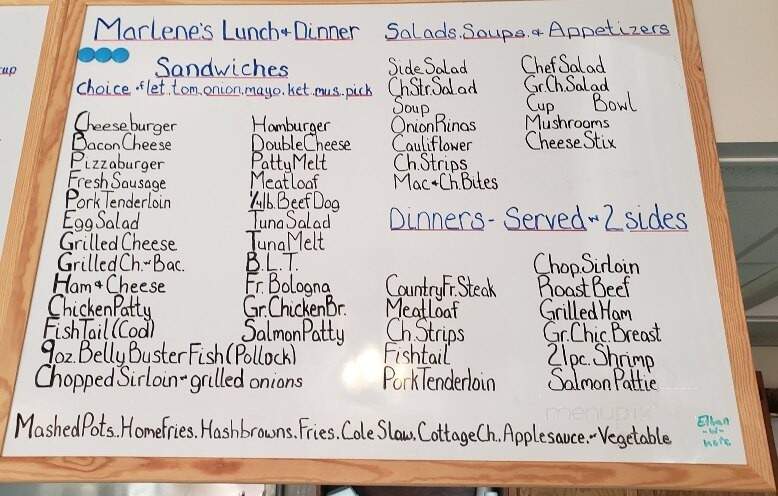 up
Marlene's Lunch + Dinner
Sandwiches
Choice of let.tom.onion.mayo.ket.mus.pick
Cheeseburger
Bacon Cheese
Pizzaburger
Fresh Sausage
Pork Tenderloin
Egg Salad
Grilled Cheese
Grilled Ch. w Bac.
Ham + Cheese
Chicken Patty
Fish Tail (Cod)
Hamburger
Double Cheese
Patty Melt
Meatloaf
1/4 lb. Beef Dog
Tuna Salad
Tuna Melt
B.L.T.
Fr. Bologna
Gr. Chicken Br.
Salmon Patty
9oz. Belly Buster Fish (Pollock)
Chopped Sirloin w grilled onions
Salads, Soups, + Appetizers
Side Salad
Ch Str Salad
Soup
Onion Rings
Cauliflower
Ch. Strips
Mac + Ch. Bites
Chef Salad
Gr. Ch. Salad
Cup Bowl
Mushrooms
Cheese Stix
Dinners - Served w 2 sides
Country Fr. Steak
Meatloaf
Ch. Strips
Fishtail
Pork Tenderloin
Chop. Sirloin
Roast Beef
Grilled Ham
Gr. Chic. Breast
21 pc. Shrimp
Salmon Pattie
Mashed Pots. Homefries. Hashbrowns. Fries. Cole Slaw. Cottage Ch. Applesauce. ~ Vegetable
menupix